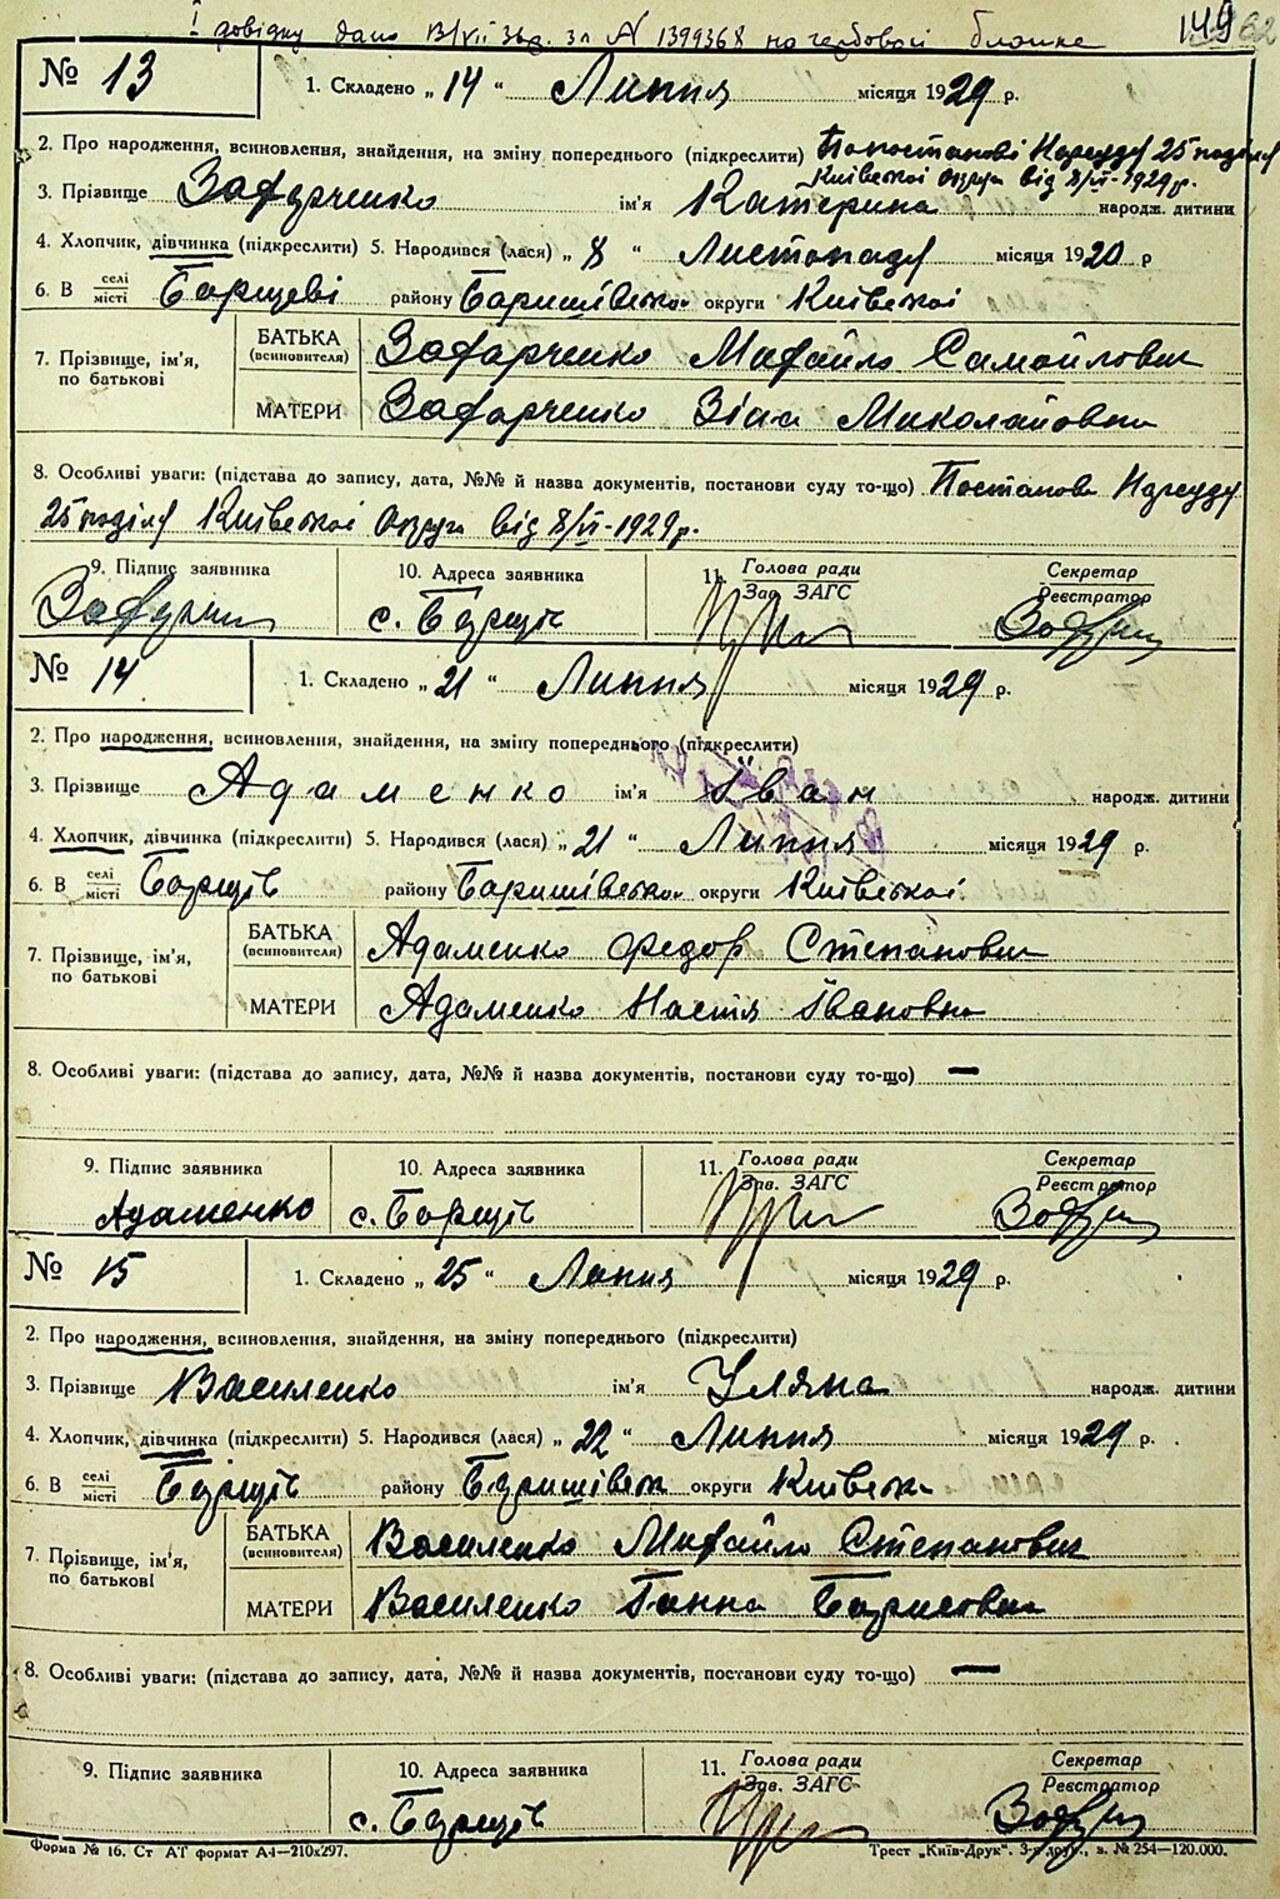 І довідку дано 13/VII 36 р. за № 1399368 на гербовой бланке
149 62
№ 13
1. Складено „ 14 “ Липня місяця 1929 р.
2. Про народження, всиновлення, знайдення, на зміну попереднього (підкреслити) По постанові Нарсуду 25 поділу
Київської округи від 8/VI-1929 р.
3. Прізвище Захарченко ім'я Катерина народж. дитини
4. Хлопчик, дівчинка (підкреслити) 5. Народився (лася) „ 8 “ Листопаду місяця 1920 р
6. В селі місті Борщеві району Баришівсько округи Київської
7. Прізвище, ім'я, по батькові
БАТЬКА (всиновителя) Захарченко Михайло Самойлович
МАТЕРИ Захарченко Зіна Миколайовна
8. Особливі уваги: (підстава до запису, дата, №№ й назва документів, постанови суду то-що) Постанова Нарсуду
25 поділу Київської округи від 8/VI-1929 р.
9. Підпис заявника
10. Адреса заявника
11. Голова ради
Зав. ЗАГС
Секретар
Реєстратор
с. Борщів
№ 14
1. Складено „ 21 “ Липня місяця 1929 р.
2. Про народження, всиновлення, знайдення, на зміну попереднього (підкреслити)
3. Прізвище Адаменко ім'я Іван народж. дитини
4. Хлопчик, дівчинка (підкреслити) 5. Народився (лася) „ 21 “ Липня місяця 1929 р.
6. В селі місті Борщів району Баришівсько округи Київської
7. Прізвище, ім'я, по батькові
БАТЬКА (всиновителя) Адаменко Федор Степанович
МАТЕРИ Адаменко Настя Івановна
8. Особливі уваги: (підстава до запису, дата, №№ й назва документів, постанови суду то-що) —
9. Підпис заявника
10. Адреса заявника
11. Голова ради
Зав. ЗАГС
Секретар
Реєстратор
Адаменко с. Борщів
№ 15
1. Складено „ 25 “ Липня місяця 1929 р.
2. Про народження, всиновлення, знайдення, на зміну попереднього (підкреслити)
3. Прізвище Василенко ім'я Уляна народж. дитини
4. Хлопчик, дівчинка (підкреслити) 5. Народився (лася) „ 22 “ Липня місяця 1929 р.
6. В селі місті Борщів району Баришівськ округи Київсько
7. Прізвище, ім'я, по батькові
БАТЬКА (всиновителя) Василенко Михайло Степанович
МАТЕРИ Василенко Ганна Борисовна
8. Особливі уваги: (підстава до запису, дата, №№ й назва документів, постанови суду то-що) —
9. Підпис заявника
10. Адреса заявника
11. Голова ради
Зав. ЗАГС
Секретар
Реєстратор
с. Борщів
Форма № 16. Ст АТ формат А4—210x297.
Трест „Київ-Друк“. 3-я друк., з. № 254—120.000.